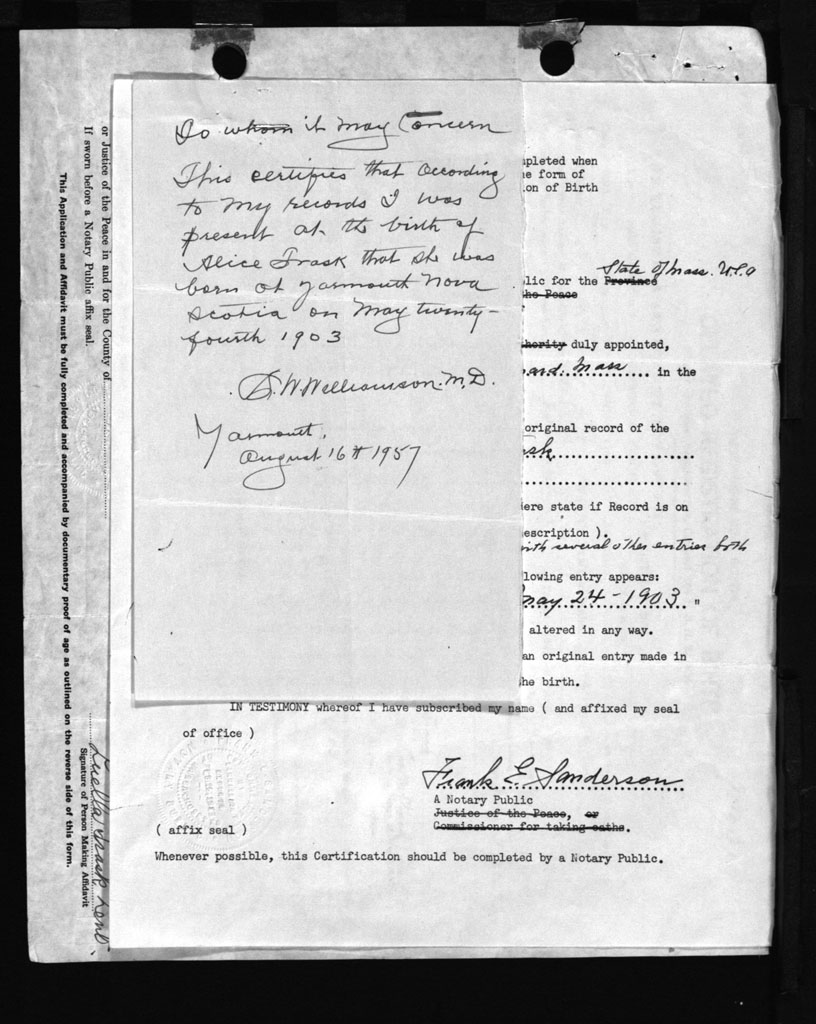 To whom it may Concern
This certifies that according
to my records I was
present at the birth of
Alice Trask that she was
born at Yarmouth Nova
Scotia on May twenty-
fourth 1903
S. W. Williamson M.D.
Yarmouth,
August 16th 1957
pleted when
e form of
on of Birth
State of Mass. U.S.A
lic for the Province
the Peace
hority duly appointed,
ard. Mass in the
original record of the
ask
ere state if Record is on
escription ).
with several other entries both
lowing entry appears:
May 24-1903. "
altered in any way.
an original entry made in
he birth.
IN TESTIMONY whereof I have subscribed my name ( and affixed my seal
of office )
Frank E. Sanderson
A Notary Public
Justice of the Peace, or
Commissioner for taking oaths.
( affix seal )
Whenever possible, this Certification should be completed by a Notary Public.
or Justice of the Peace in and for the County of
If sworn before a Notary Public affix seal.
This Application and Affidavit must be fully completed and accompanied by documentary proof of age as outlined on the reverse side of this form.
Luella Trask Lent
Signature of Person Making Affidavit